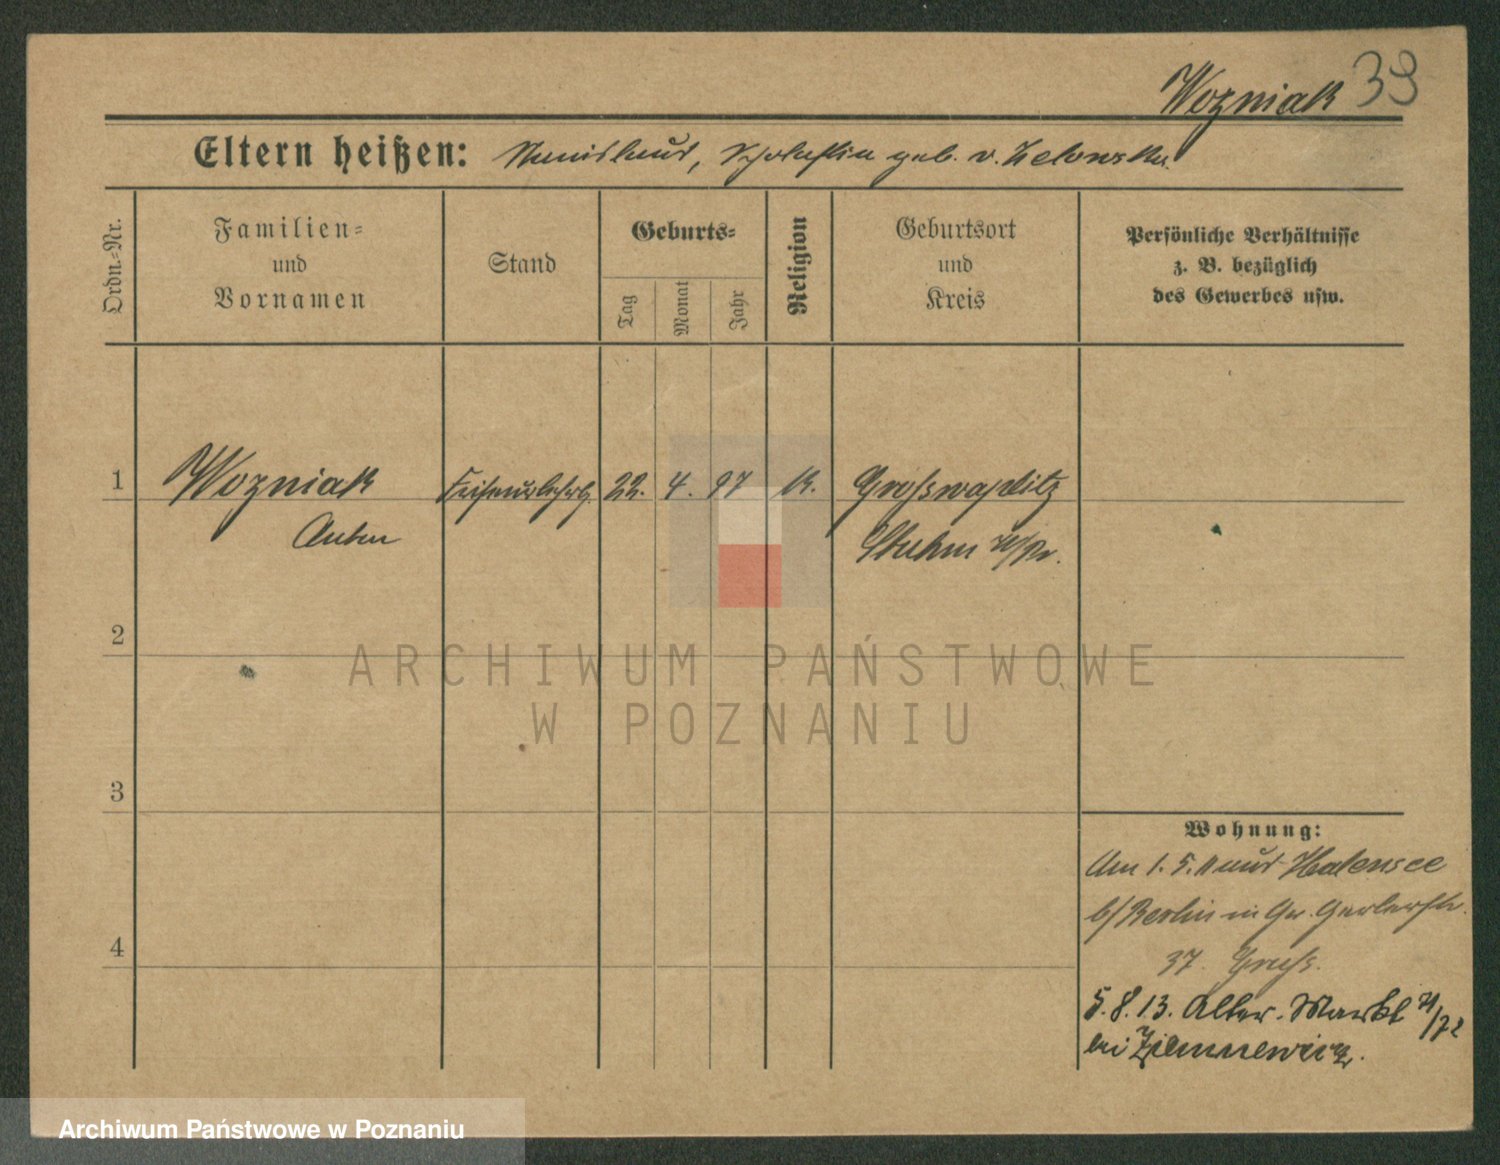 Wozniak 39
Eltern heißen: Stanislaus, Scholastika geb. v. Zelowska
Ordn.-Nr.
Familien-
und
Vornamen
Stand
Geburts-
Tag
Monat
Jahr
Religion
Geburtsort
und
Kreis
Persönliche Verhältnisse
z. B. bezüglich
des Gewerbes usw.
1 Wozniak Friseurlehrl. 22. 4. 97 K. Großwaplitz
Anton Stuhm W/Pr.
2
ARCHIWUM PAŃSTWOWE
W POZNANIU
3
Wohnung:
Am 1. 5. 11 aus Halensee
b/ Berlin in
4
37.
5. 8. 13. Alter Markt 71/72
bei
Archiwum Państwowe w Poznaniu